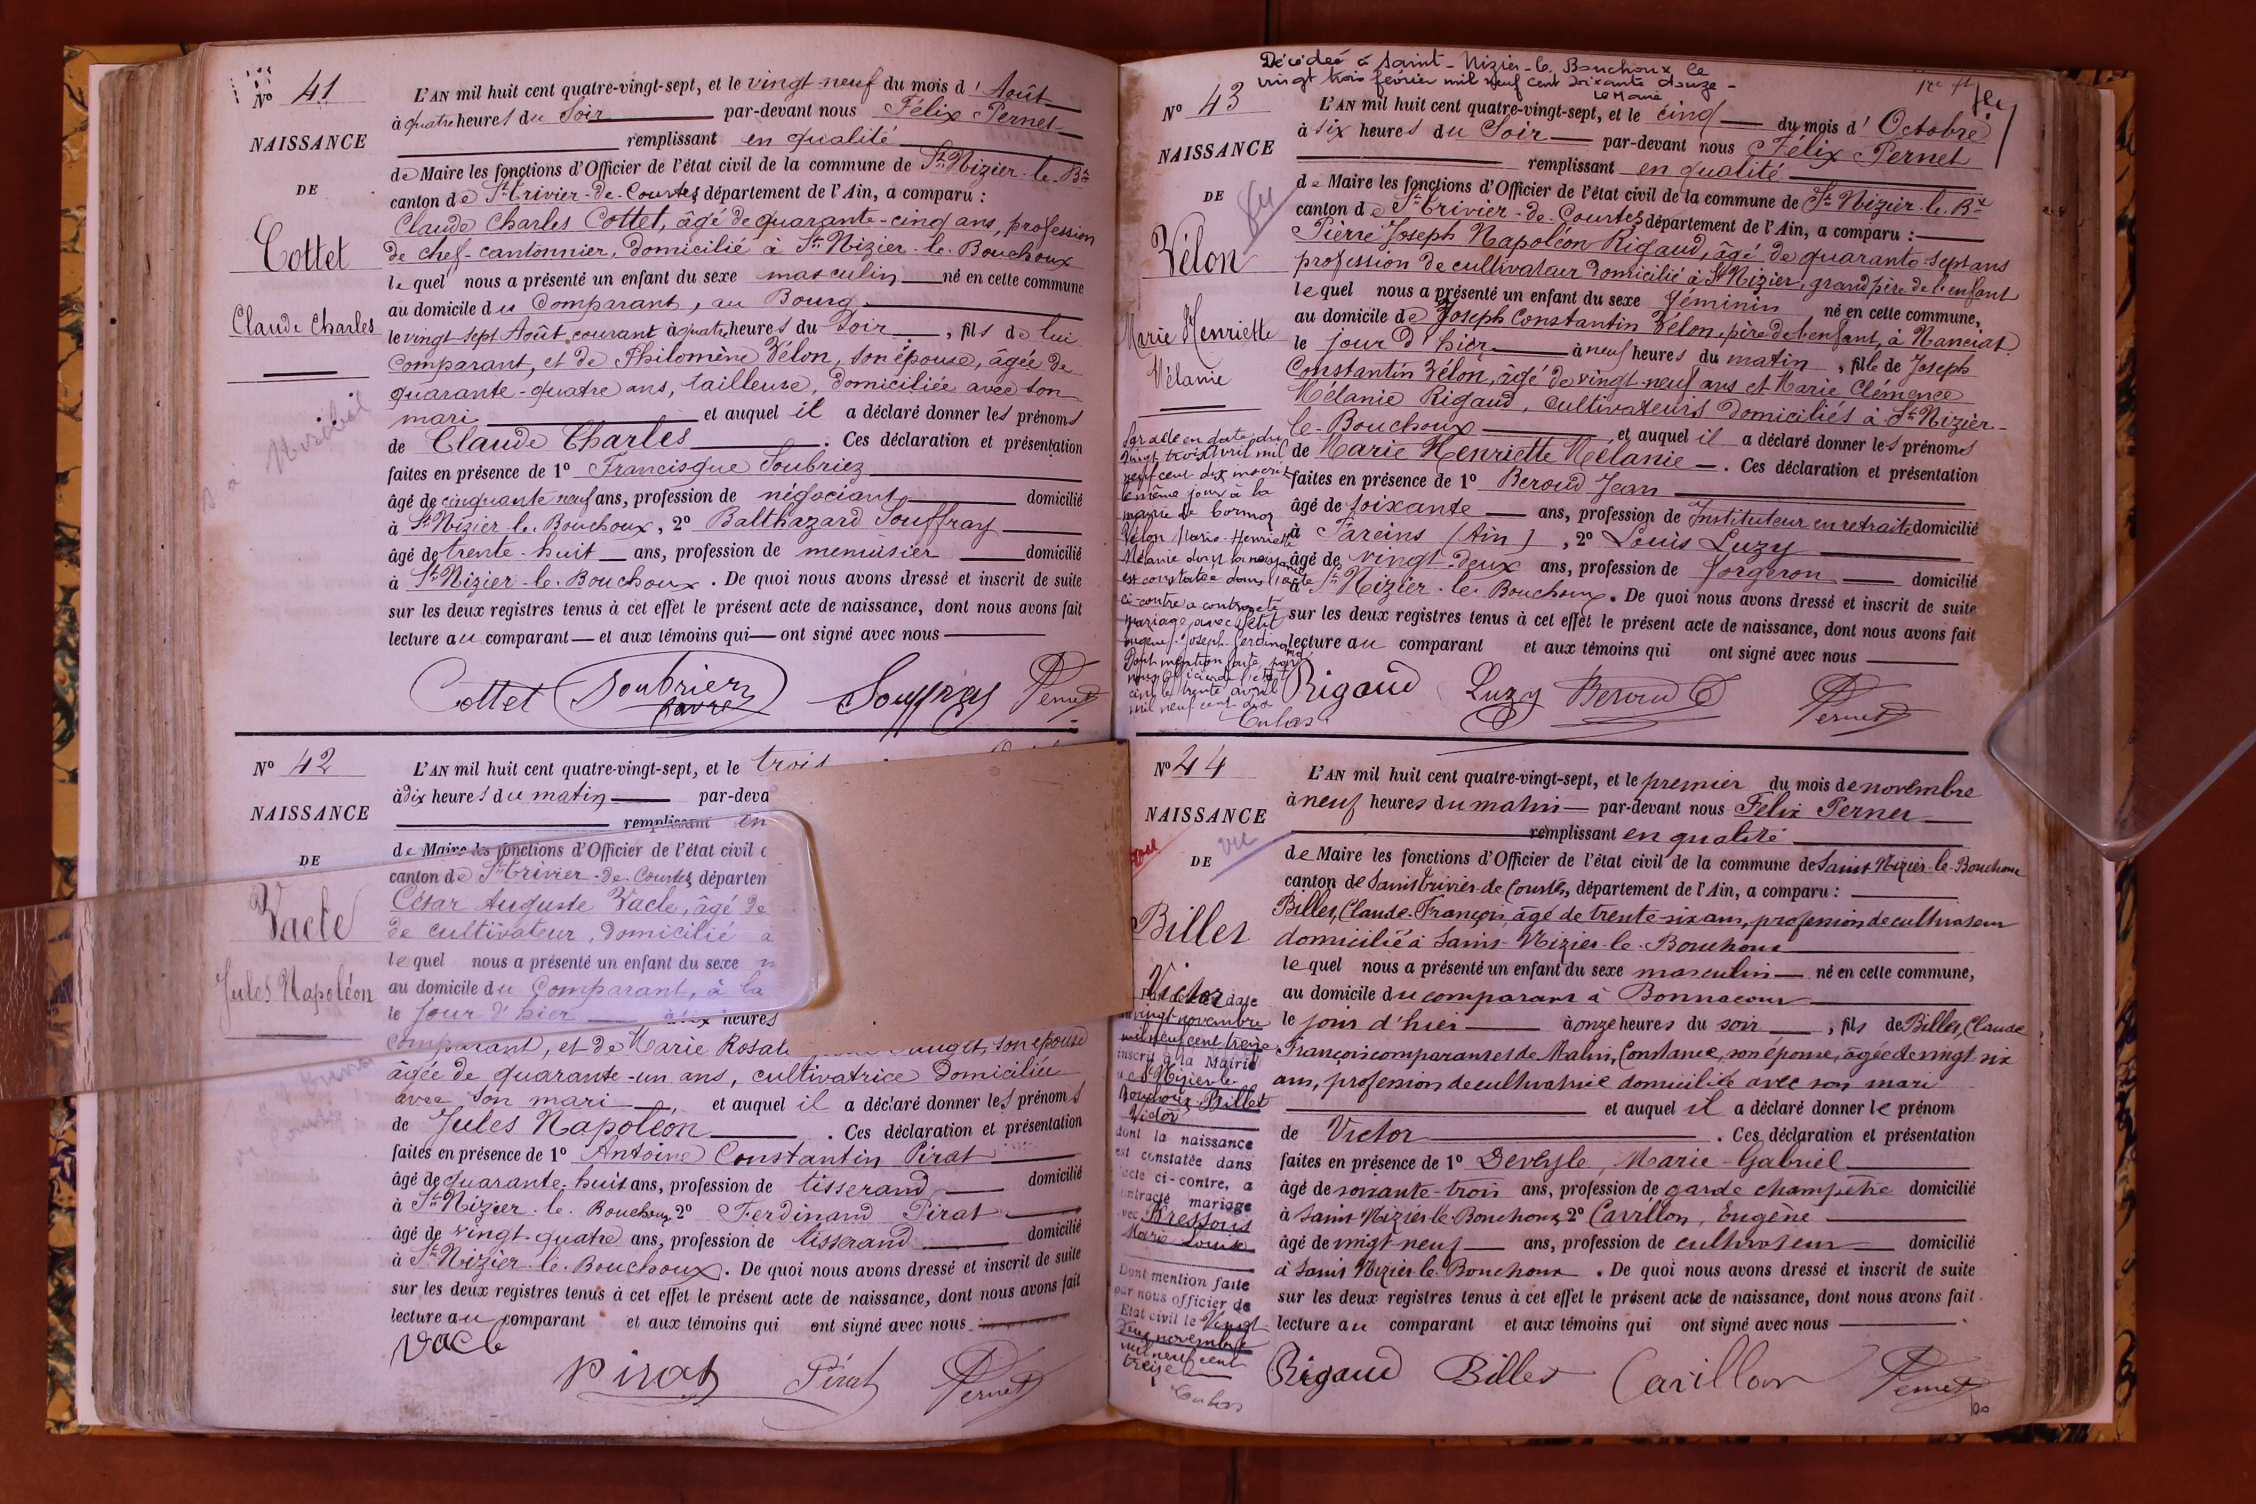 N° 41
NAISSANCE
DE
Cottet
Claude Charles
L'AN mil huit cent quatre-vingt-sept, et le vingt-neuf du mois d'Août
à quatre heures du Soir par-devant nous Félix Pernet
remplissant en qualité
de Maire les fonctions d'Officier de l'état civil de la commune de St Nizier-le-Bx
canton de St Trivier-de-Courtes département de l'Ain, a comparu :
Claude Charles Cottet, âgé de quarante-cinq ans, profession
de chef-cantonnier, domicilié à St Nizier-le-Bouchoux
lequel nous a présenté un enfant du sexe masculin né en cette commune
au domicile du Comparant, au Bourg
le vingt-sept Août courant à quatre heures du Soir, fils de lui
comparant, et de Philomène Vélon, son épouse, âgée de
quarante-quatre ans, tailleuse, domiciliée avec son
mari et auquel il a déclaré donner les prénoms
de Claude Charles. Ces déclaration et présentation
faites en présence de 1° Francisque Soubriez
âgé de cinquante neuf ans, profession de négociant domicilié
à St Nizier-le-Bouchoux, 2° Balthazard Souffray
âgé de trente-huit ans, profession de menuisier domicilié
à St Nizier-le-Bouchoux. De quoi nous avons dressé et inscrit de suite
sur les deux registres tenus à cet effet le présent acte de naissance, dont nous avons fait
lecture au comparant et aux témoins qui ont signé avec nous
Cottet Soubriez Souffray Pernet
N° 42
NAISSANCE
DE
Vacle
Jules Napoléon
L'AN mil huit cent quatre-vingt-sept, et le trois
à dix heures du matin par-deva
remplissant en
de Maire les fonctions d'Officier de l'état civil
canton de St Trivier-de-Courtes départem
César Auguste Vacle, âgé de
de cultivateur, domicilié à
lequel nous a présenté un enfant du sexe
au domicile du Comparant, à la
le jour d'hier à dix heures
comparant, et de Marie Rosal son épouse
âgée de quarante-un ans, cultivatrice domiciliée
avec son mari, et auquel il a déclaré donner les prénoms
de Jules Napoléon. Ces déclaration et présentation
faites en présence de 1° Antoine Constantin Pirat
âgé de quarante-huit ans, profession de tisserand domicilié
à St Nizier-le-Bouchoux 2° Ferdinand Pirat
âgé de vingt-quatre ans, profession de tisserand domicilié
à St Nizier-le-Bouchoux. De quoi nous avons dressé et inscrit de suite
sur les deux registres tenus à cet effet le présent acte de naissance, dont nous avons fait
lecture au comparant et aux témoins qui ont signé avec nous
Vacle
Pirat Pirat Pernet
Décédée à Saint-Nizier-le-Bouchoux le
vingt trois février mil neuf cent soixante douze -
Le Maire
N° 43
NAISSANCE
DE
vu
Vélon
Marie Henriette
Mélanie
Par acte en date du
vingt trois avril mil
neuf cent dix inscrit
le même jour à la
mairie de Cormoz
Vélon Marie-Henriette
Mélanie dont la naissance
est constatée dans l'acte
ci-contre a contracté
mariage avec Petit
Eugène-Joseph-Ferdinand
Dont mention faite par
nous officier de l'état
civil le trente avril
mil neuf cent dix
L'AN mil huit cent quatre-vingt-sept, et le cinq du mois d'Octobre
à six heures du Soir par-devant nous Félix Pernet
remplissant en qualité
de Maire les fonctions d'Officier de l'état civil de la commune de St Nizier-le-Bx
canton de St Trivier-de-Courtes département de l'Ain, a comparu :
Pierre Joseph Napoléon Rigaud, âgé de quarante-sept ans
profession de cultivateur domicilié à St Nizier, grand père de l'enfant
lequel nous a présenté un enfant du sexe féminin né en cette commune,
au domicile de Joseph Constantin Vélon, père de l'enfant, à Nanciat
le jour d'hier à neuf heures du matin, fille de Joseph
Constantin Vélon, âgé de vingt-neuf ans et Marie Clémence
Mélanie Rigaud, cultivateurs domiciliés à St Nizier-
le-Bouchoux et auquel il a déclaré donner les prénoms
de Marie Henriette Mélanie. Ces déclaration et présentation
faites en présence de 1° Beroud Jean
âgé de soixante ans, profession de Instituteur en retraite domicilié
à Fareins (Ain), 2° Louis Luzy
âgé de vingt-deux ans, profession de forgeron domicilié
à St Nizier-le-Bouchoux. De quoi nous avons dressé et inscrit de suite
sur les deux registres tenus à cet effet le présent acte de naissance, dont nous avons fait
lecture au comparant et aux témoins qui ont signé avec nous
Rigaud Luzy Beroud Pernet
N° 44
NAISSANCE
DE
vu
Billet
Victor
Par acte en date
du vingt novembre
mil neuf cent treize
inscrit à la Mairie
de St Nizier-le-
Bouchoux Billet
Victor
dont la naissance
est constatée dans
l'acte ci-contre, a
contracté mariage
avec Bressoux
Marie Louise
Dont mention faite
par nous officier de
l'Etat civil le Vingt
novembre
mil neuf cent
treize
L'AN mil huit cent quatre-vingt-sept, et le premier du mois de novembre
à neuf heures du matin par-devant nous Félix Pernet
remplissant en qualité
de Maire les fonctions d'Officier de l'état civil de la commune de Saint Nizier-le-Bouchoux
canton de Saint Trivier-de-Courtes, département de l'Ain, a comparu :
Billet, Claude-François, âgé de trente-six ans, profession de cultivateur
domicilié à Saint-Nizier-le-Bouchoux
lequel nous a présenté un enfant du sexe masculin né en cette commune,
au domicile du comparant à Bonnacour
le jour d'hier à onze heures du soir, fils de Billet, Claude
François comparant et de Malin, Constance, son épouse, âgée de vingt-six
ans, profession de cultivatrice domiciliée avec son mari
et auquel il a déclaré donner le prénom
de Victor. Ces déclaration et présentation
faites en présence de 1° Deveyle, Marie-Gabriel
âgé de soixante-trois ans, profession de garde champêtre domicilié
à Saint Nizier-le-Bouchoux 2° Cavillon, Eugène
âgé de vingt-neuf ans, profession de cultivateur domicilié
à Saint Nizier-le-Bouchoux. De quoi nous avons dressé et inscrit de suite
sur les deux registres tenus à cet effet le présent acte de naissance, dont nous avons fait
lecture au comparant et aux témoins qui ont signé avec nous
Rigaud Billet Cavillon Pernet